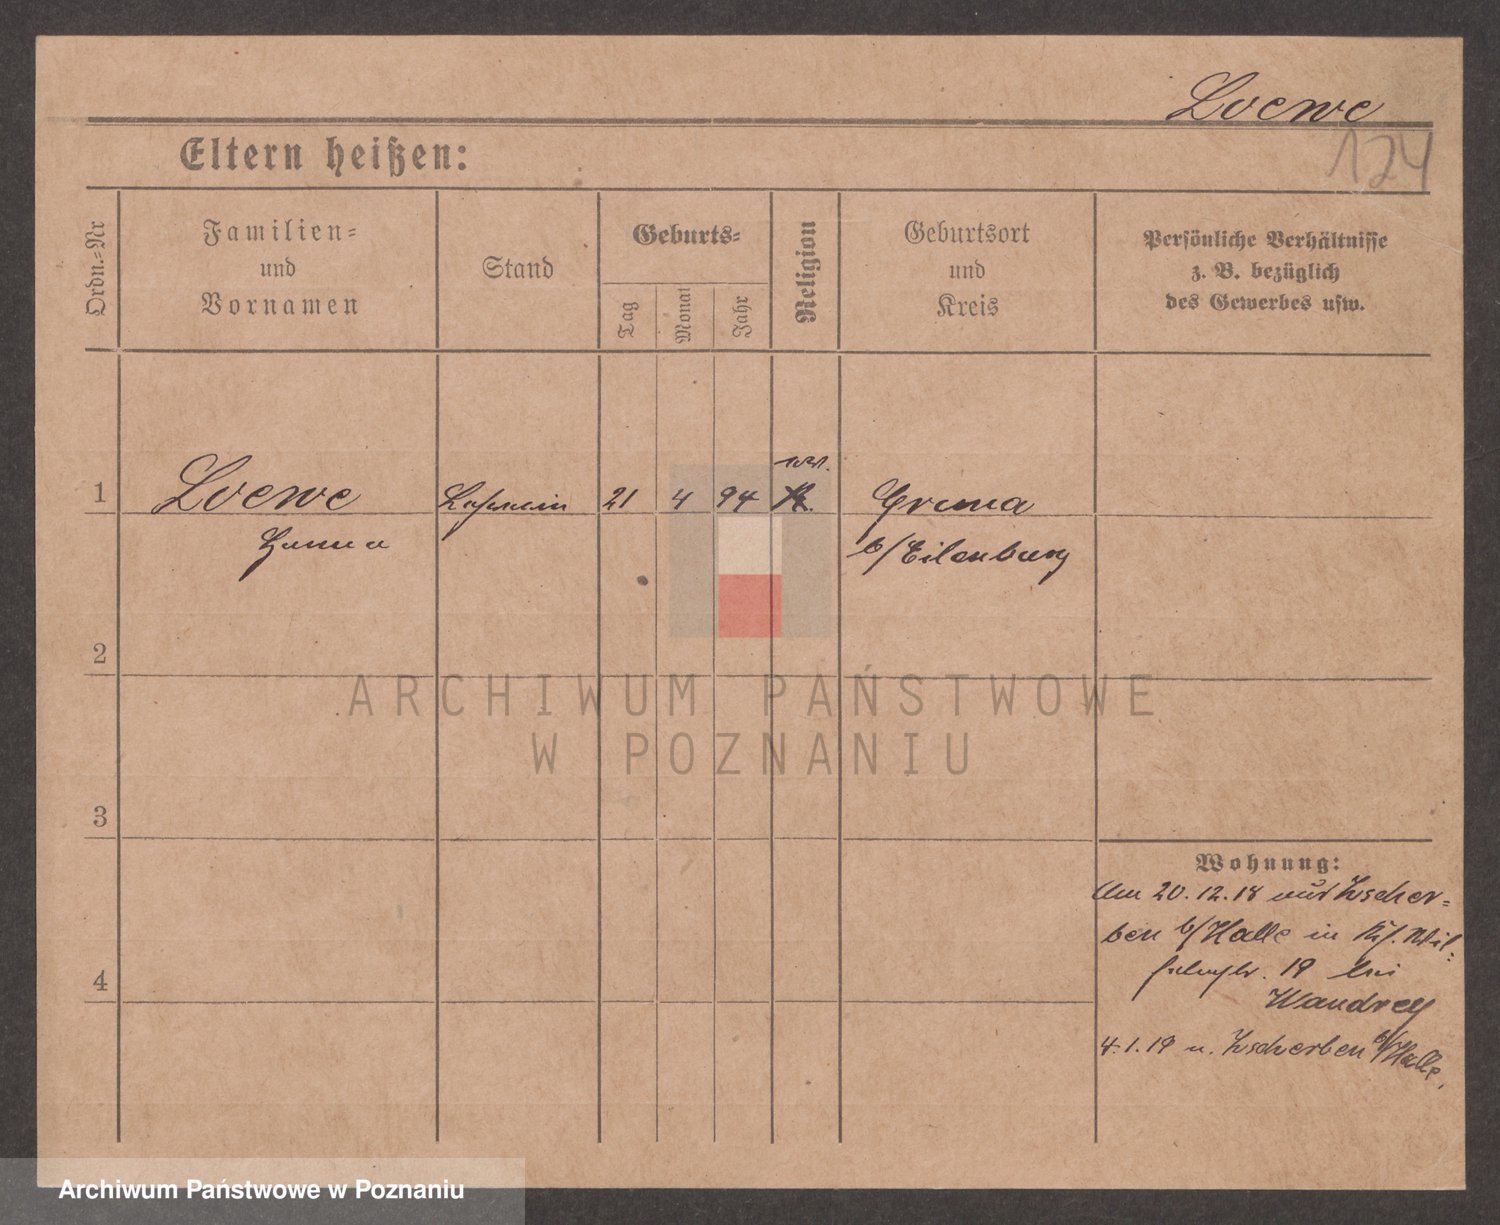 Loewe
124
Eltern heißen:
Ordn.-Nr
Familien-
und
Vornamen
Stand
Geburts-
Tag
Monat
Jahr
Religion
Geburtsort
und
Kreis
Persönliche Verhältnisse
z. B. bezüglich
des Gewerbes usw.
ev.
1 Loewe 21 4 94 Gruna
Hanna b/Eilenburg
2
3
4
Wohnung:
Am 20.12.18 aus Zscher-
ben b/Halle in Kf. Wil-
helmstr. 19 bei
Wandrey
4.1.19 n. Zscherben b/Halle.
ARCHIWUM PAŃSTWOWE
W POZNANIU
Archiwum Państwowe w Poznaniu